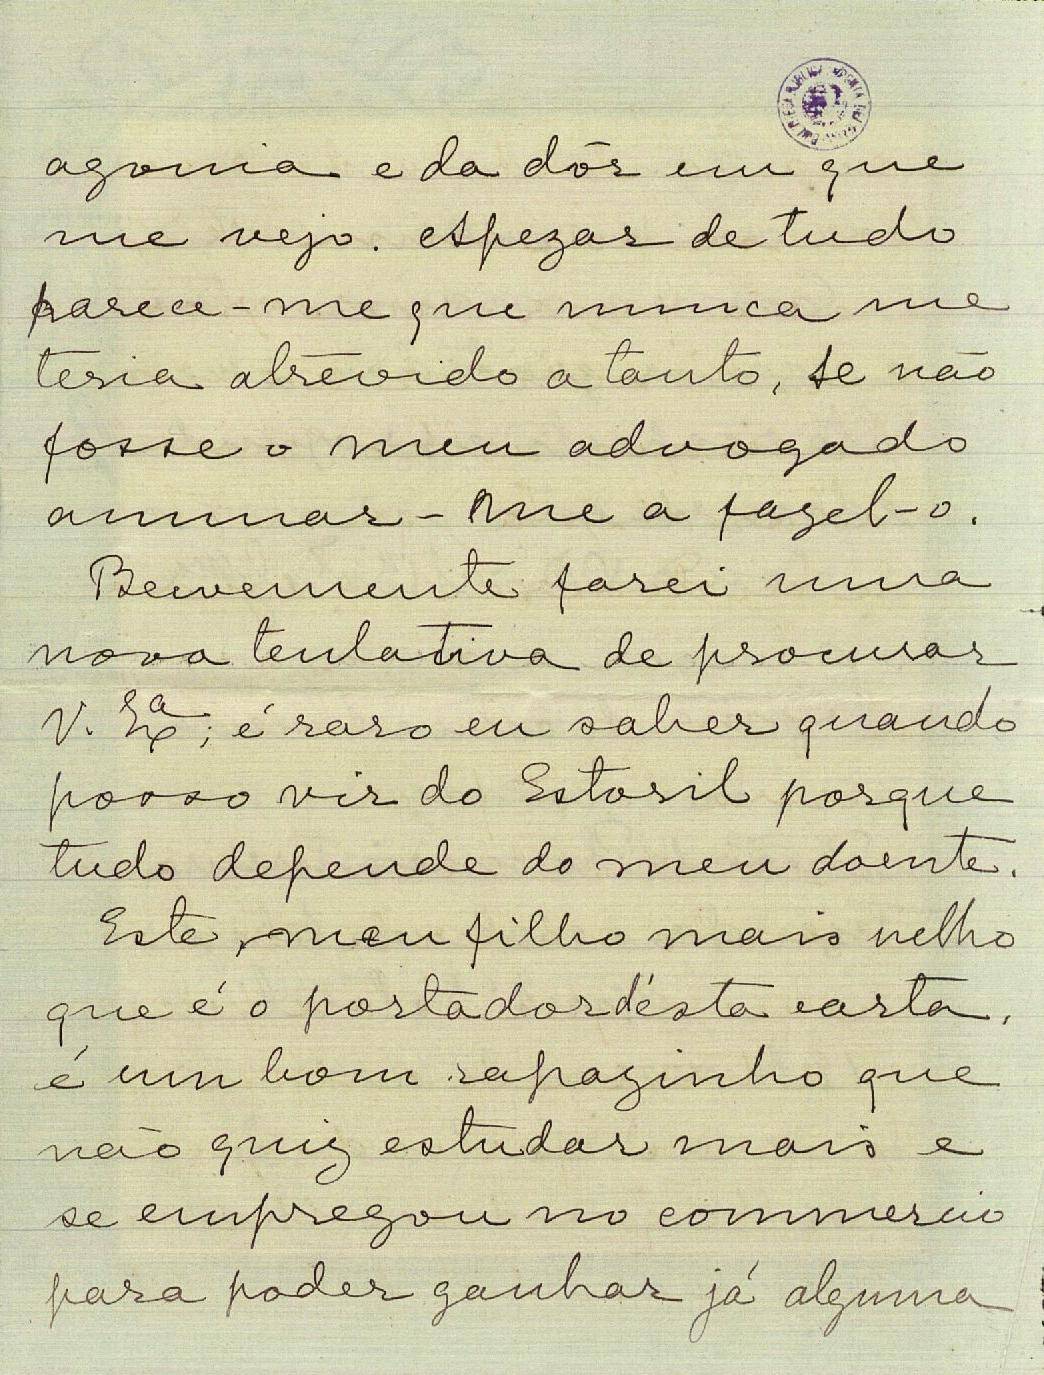 agonia e da dôr em que
me vejo. Apezar de tudo
parece-me que nunca me
teria atrevido a tanto, se não
fosse o meu advogado
animar-me a fazel-o.
Brevemente farei uma
nova tentativa de procurar
V. Exª; é raro eu saber quando
posso vir do Estoril porque
tudo depende do meu doente.
Este, meu filho mais velho
que é o portador d'ésta carta,
é um bom rapazinho que
não quiz estudar mais e
se empregou no commercio
para poder ganhar já alguma